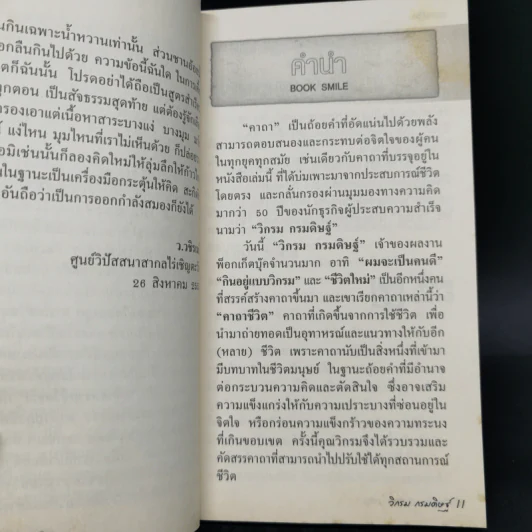 นกินเฉพาะน้ำหวานเท่านั้น ส่วนชาน
อกลืนกินไปด้วย ความข้อนี้ฉันใด ในการ
ตก็ฉันนั้น โปรดอย่าได้ถือเป็นสูตรสำเร็
ทุกตอน เป็นสัจธรรมสุดท้าย แต่ต้องรู้จัก
รองเอาแต่เนื้อหาสาระบางแง่ บางมุม
แง่ไหน มุมไหนที่เราไม่เห็นด้วย ก็ปล่อย
อมิเช่นนั้นก็ลองคิดใหม่ให้ลุ่มลึกให้ก้าว
นในฐานะเป็นเครื่องมือกระตุ้นให้คิด สะกิด
อันถือว่าเป็นการออกกำลังสมองก็ยังได้
ว.วชิร
ศูนย์วิปัสสนาสากลไร่เชิญตะวั
26 สิงหาคม 25
คำนำ
BOOK SMILE
“คาถา” เป็นถ้อยคำที่อัดแน่นไปด้วยพลัง
สามารถตอบสนองและกระทบต่อจิตใจของผู้คน
ในทุกยุคทุกสมัย เช่นเดียวกับคาถาที่บรรจุอยู่ใน
หนังสือเล่มนี้ ที่ได้บ่มเพาะมาจากประสบการณ์ชีวิต
โดยตรง และกลั่นกรองผ่านมุมมองทางความคิด
มากว่า 50 ปีของนักธุรกิจผู้ประสบความสำเร็จ
นามว่า “วิกรม กรมดิษฐ์”
วันนี้ “วิกรม กรมดิษฐ์” เจ้าของผลงาน
พ็อกเก็ตบุ๊คจำนวนมาก อาทิ “ผมจะเป็นคนดี”
“กินอยู่แบบวิกรม” และ “ชีวิตใหม่” เป็นอีกหนึ่งคน
ที่สรรค์สร้างคาถาขึ้นมา และเขาเรียกคาถาเหล่านี้ว่า
“คาถาชีวิต” คาถาที่เกิดขึ้นจากการใช้ชีวิต เพื่อ
นำมาถ่ายทอดเป็นอุทาหรณ์และแนวทางให้กับอีก
(หลาย) ชีวิต เพราะคาถานับเป็นสิ่งหนึ่งที่เข้ามา
มีบทบาทในชีวิตมนุษย์ ในฐานะถ้อยคำที่มีอำนาจ
ต่อกระบวนความคิดและตัดสินใจ ซึ่งอาจเสริม
ความแข็งแกร่งให้กับความเปราะบางที่ซ่อนอยู่ใน
จิตใจ หรือกร่อนความแข็งกร้าวของความทระนง
ที่เกินขอบเขต ครั้งนี้คุณวิกรมจึงได้รวบรวมและ
คัดสรรคาถาที่สามารถนำไปปรับใช้ได้ทุกสถานการณ์
ชีวิต
วิกรม กรมดิษฐ์ 11